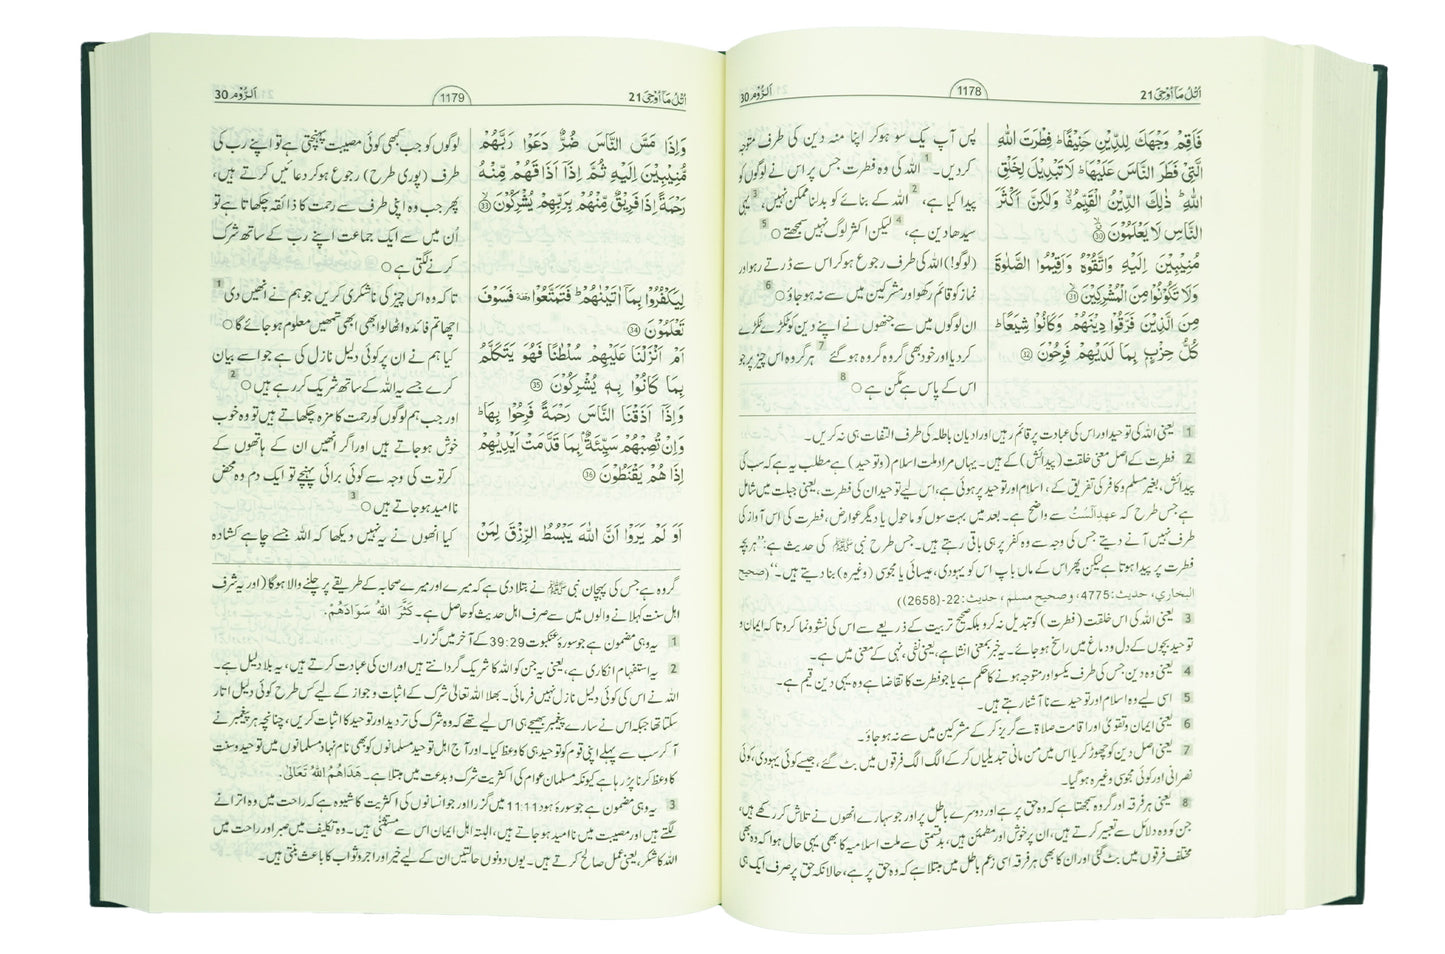 اُتْلُ مَا اُوْحِیَ 21
1178
اَلرُّوْم 30
فَاَقِمْ وَجْهَكَ لِلدِّیْنِ حَنِیْفًا ؕ فِطْرَتَ اللّٰهِ
الَّتِیْ فَطَرَ النَّاسَ عَلَیْهَا ؕ لَا تَبْدِیْلَ لِخَلْقِ
اللّٰهِ ؕ ذٰلِكَ الدِّیْنُ الْقَیِّمُ ۙ وَلٰكِنَّ اَكْثَرَ
النَّاسِ لَا یَعْلَمُوْنَ ۙ 30
مُنِیْبِیْنَ اِلَیْهِ وَاتَّقُوْهُ وَاَقِیْمُوا الصَّلٰوةَ
وَلَا تَكُوْنُوْا مِنَ الْمُشْرِكِیْنَ ۙ 31
مِنَ الَّذِیْنَ فَرَّقُوْا دِیْنَهُمْ وَكَانُوْا شِیَعًا ؕ
كُلُّ حِزْبٍۭ بِمَا لَدَیْهِمْ فَرِحُوْنَ 32
پس آپ یک سو ہوکر اپنا منہ دین کی طرف متوجہ
کردیں۔ 1 اللہ کی وہ فطرت جس پر اس نے لوگوں کو
پیدا کیا ہے، 2 اللہ کے بنائے کو بدلنا ممکن نہیں، 3 یہی
سیدھا دین ہے، 4 لیکن اکثر لوگ نہیں سمجھتے 5
(لوگو!) اللہ کی طرف رجوع ہوکر اس سے ڈرتے رہو اور
نماز کو قائم رکھو اور مشرکین میں سے نہ ہوجاؤ 6
ان لوگوں میں سے جنھوں نے اپنے دین کو ٹکڑے ٹکڑے
کردیا اور خود بھی گروہ گروہ ہوگئے 7 ہر گروہ اس چیز پر جو
اس کے پاس ہے مگن ہے 8
1 یعنی اللہ کی توحید اور اس کی عبادت پر قائم رہیں اور ادیان باطلہ کی طرف التفات ہی نہ کریں۔
2 فطرت کے اصل معنی خلقت (پیدائش) کے ہیں۔ یہاں مراد ملت اسلام (و توحید) ہے مطلب یہ ہے کہ سب کی
پیدائش، بغیر مسلم و کافر کی تفریق کے، اسلام اور توحید پر ہوئی ہے، اس لیے توحید ان کی فطرت، یعنی جبلت میں شامل
ہے جس طرح کہ عہدِ اَلَسْتُ سے واضح ہے۔ بعد میں بہت سوں کو ماحول یا دیگر عوارض، فطرت کی اس آواز کی
طرف نہیں آنے دیتے جس کی وجہ سے وہ کفر پر ہی باقی رہتے ہیں۔ جس طرح نبی ﷺ کی حدیث ہے: ”ہر بچہ
فطرت پر پیدا ہوتا ہے لیکن پھر اس کے ماں باپ اس کو یہودی، عیسائی یا مجوسی (وغیرہ) بنا دیتے ہیں۔“ (صحیح
البخاري، حديث: 4775، و صحیح مسلم، حديث: 22-(2658))
3 یعنی اللہ کی اس خلقت (فطرت) کو تبدیل نہ کرو بلکہ صحیح تربیت کے ذریعے سے اس کی نشوونما کرو تاکہ ایمان و
توحید بچوں کے دل و دماغ میں راسخ ہوجائے۔ یہ خبر بمعنی انشا ہے، یعنی نفی، نہی کے معنی میں ہے۔
4 یعنی وہ دین جس کی طرف یکسو اور متوجہ ہونے کا حکم ہے یا جو فطرت کا تقاضا ہے وہ یہی دین قیم ہے۔
5 اسی لیے وہ اسلام اور توحید سے نا آشنا رہتے ہیں۔
6 یعنی ایمان و تقویٰ اور اقامت صلاۃ سے گریز کر کے مشرکین میں سے نہ ہوجاؤ۔
7 یعنی اصل دین کو چھوڑ کر یا اس میں من مانی تبدیلیاں کر کے الگ الگ فرقوں میں بٹ گئے، جیسے کوئی یہودی، کوئی
نصرانی اور کوئی مجوسی وغیرہ ہوگیا۔
8 یعنی ہر فرقہ اور گروہ سمجھتا ہے کہ وہ حق پر ہے اور دوسرے باطل پر اور جو سہارے انھوں نے تلاش کر رکھے ہیں،
جن کو وہ دلائل سے تعبیر کرتے ہیں، ان پر خوش اور مطمئن ہیں، بدقسمتی سے ملت اسلامیہ کا بھی یہی حال ہوا کہ وہ بھی
مختلف فرقوں میں بٹ گئی اور ان کا بھی ہر فرقہ اسی زعم باطل میں مبتلا ہے کہ وہ حق پر ہے، حالانکہ حق پر صرف ایک ہی
اُتْلُ مَا اُوْحِیَ 21
1179
اَلرُّوْم 30
وَاِذَا مَسَّ النَّاسَ ضُرٌّ دَعَوْا رَبَّهُمْ
مُّنِیْبِیْنَ اِلَیْهِ ثُمَّ اِذَاۤ اَذَاقَهُمْ مِّنْهُ
رَحْمَةً اِذَا فَرِیْقٌ مِّنْهُمْ بِرَبِّهِمْ یُشْرِكُوْنَ ۙ 33
لِیَكْفُرُوْا بِمَاۤ اٰتَیْنٰهُمْ ؕ فَتَمَتَّعُوْا وقفة فَسَوْفَ
تَعْلَمُوْنَ 34
اَمْ اَنْزَلْنَا عَلَیْهِمْ سُلْطٰنًا فَهُوَ یَتَكَلَّمُ
بِمَا كَانُوْا بِهٖ یُشْرِكُوْنَ 35
وَاِذَاۤ اَذَقْنَا النَّاسَ رَحْمَةً فَرِحُوْا بِهَا ؕ
وَاِنْ تُصِبْهُمْ سَیِّئَةٌۢ بِمَا قَدَّمَتْ اَیْدِیْهِمْ
اِذَا هُمْ یَقْنَطُوْنَ 36
اَوَ لَمْ یَرَوْا اَنَّ اللّٰهَ یَبْسُطُ الرِّزْقَ لِمَنْ
لوگوں کو جب کبھی کوئی مصیبت پہنچتی ہے تو اپنے رب کی
طرف (پوری طرح) رجوع ہوکر دعائیں کرتے ہیں،
پھر جب وہ اپنی طرف سے رحمت کا ذائقہ چکھاتا ہے تو
اُن میں سے ایک جماعت اپنے رب کے ساتھ شرک
کرنے لگتی ہے
تاکہ وہ اس چیز کی ناشکری کریں جو ہم نے انھیں دی 1
اچھا تم فائدہ اٹھا لو ابھی ابھی تمھیں معلوم ہوجائے گا
کیا ہم نے ان پر کوئی دلیل نازل کی ہے جو اسے بیان
کرے جسے یہ اللہ کے ساتھ شریک کر رہے ہیں 2
اور جب ہم لوگوں کو رحمت کا مزہ چکھاتے ہیں تو وہ خوب
خوش ہوجاتے ہیں اور اگر انھیں ان کے ہاتھوں کے
کرتوت کی وجہ سے کوئی برائی پہنچے تو ایک دم وہ محض
ناامید ہوجاتے ہیں 3
کیا انھوں نے یہ نہیں دیکھا کہ اللہ جسے چاہے کشادہ
گروہ ہے جس کی پہچان نبی ﷺ نے بتلا دی ہے کہ میرے اور میرے صحابہ کے طریقے پر چلنے والا ہوگا (اور یہ شرف
اہل سنت کہلانے والوں میں سے صرف اہل حدیث کو حاصل ہے۔ كَثَّرَ اللّٰهُ سَوَادَهُمْ.
1 یہ وہی مضمون ہے جو سورۂ عنکبوت 39:29 کے آخر میں گزرا۔
2 یہ استفہام انکاری ہے، یعنی یہ جن کو اللہ کا شریک گردانتے ہیں اور ان کی عبادت کرتے ہیں، یہ بلا دلیل ہے۔
اللہ نے اس کی کوئی دلیل نازل نہیں فرمائی۔ بھلا اللہ تعالیٰ شرک کے اثبات و جواز کے لیے کس طرح کوئی دلیل اتار
سکتا تھا جبکہ اس نے سارے پیغمبر بھیجے ہی اس لیے تھے کہ وہ شرک کی تردید اور توحید کا اثبات کریں، چنانچہ ہر پیغمبر نے
آ کر سب سے پہلے اپنی قوم کو توحید ہی کا وعظ کیا۔ اور آج اہل توحید مسلمانوں کو بھی نام نہاد مسلمانوں میں توحید و سنت
کا وعظ کرنا پڑ رہا ہے کیونکہ مسلمان عوام کی اکثریت شرک و بدعت میں مبتلا ہے۔ هَدَاهُمُ اللّٰهُ تَعَالٰی.
3 یہ وہی مضمون ہے جو سورۂ ہود 11:11 میں گزرا اور جو انسانوں کی اکثریت کا شیوہ ہے کہ راحت میں وہ اترانے
لگتے ہیں اور مصیبت میں ناامید ہوجاتے ہیں، البتہ اہل ایمان اس سے مستثنیٰ ہیں۔ وہ تکلیف میں صبر اور راحت میں
اللہ کا شکر، یعنی عمل صالح کرتے ہیں۔ یوں دونوں حالتیں ان کے لیے خیر اور اجر و ثواب کا باعث بنتی ہیں۔